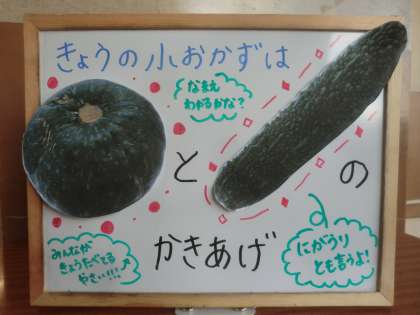 きょうの小おかずは
なまえ
わかるかな?
と
の
かきあげ
みんなが
きょうたべてる
やさい!!!
にがうり
とも言うよ!